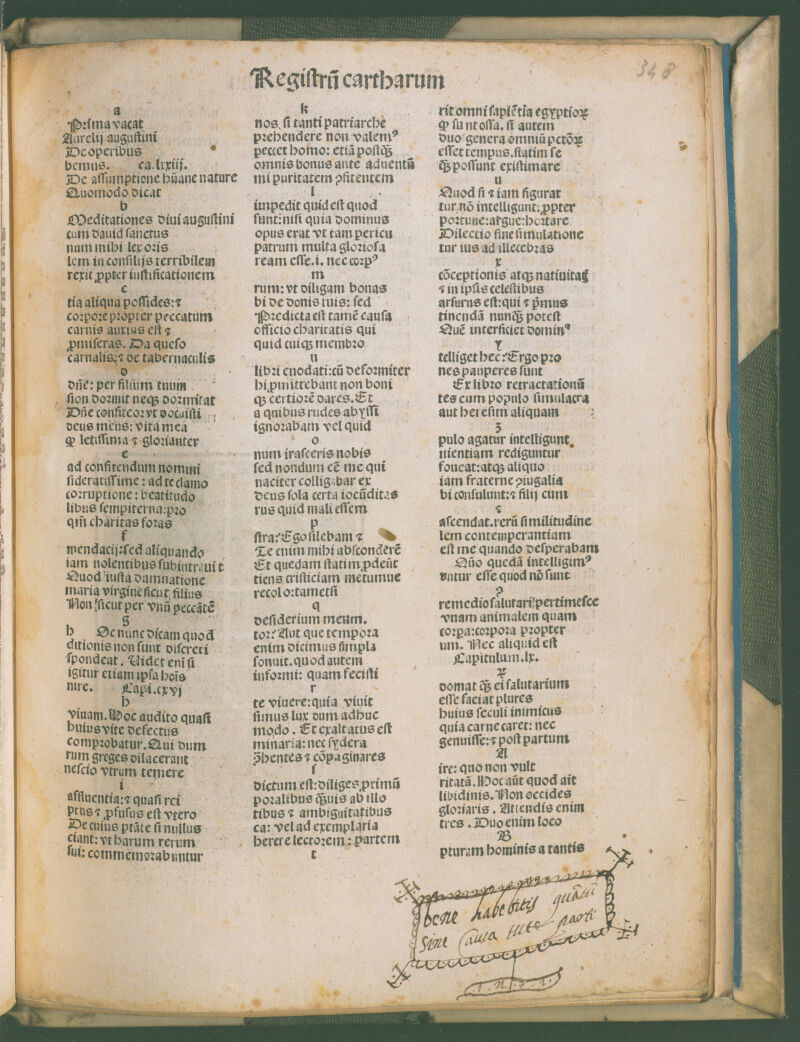 348
Regiſtrū cartharum
a
Prima vacat
Aurelij auguſtini
De operibus
bemus. ca.lxiij.
De aſſumptione hūane nature
Quomodo dicat
b
Meditationes diui auguſtini
cum dauid ſanctus
num mihi lex oris
lem in conſilijs terribilem
rexit ꝓpter iuſtificationem
c
tia aliqua poſſides:⁊
corpore propter peccatum
carnis auxius eſt ⁊
ꝓmiſeras. Da queſo
carnalis:⁊ de tabernaculis
d
dñe: per filium tuum
ſion dormit neqꝫ dormitat
Dñe confiteor:vt docuiſti
deus meus: vita mea
ꝙ letiſſima ⁊ glorianter
e
ad confitendum nomini
ſideratiſſime: ad te clamo
corruptione: beatitudo
libus ſempiterna:pro
qm̄ charitas foras
f
mendacij:ſed aliquando
iam nolentibus ſubintrauit
Quod iuſta damnatione
maria virgine ſicut filius
Non ſicut per vnū peccātē
g
h De nunc dicam quod
ditionis non ſunt diſcreti
ſpondeat. Uidet eni ſi
igitur etiam ipſa hoīs
nire. Capi.cxvj
h
viuam. Hoc audito quaſi
huius vite defectus
comprobatur. Qui dum
rum greges dilacerant
neſcio vtrum temere
i
affluentia:⁊ quaſi rei
ptus ⁊ ꝓfuſus eſt vtero
De cuius ptāte ſi nullus
ciant: vt harum rerum
ſui: commemorabuntur
k
nos. ſi tanti patriarche
prehendere non valemꝰ
peccet homo: etiā poſtqꝫ
omnis bonus ante aduentū
mi puritatem ꝯfitentem
l
impedit quid eſt quod
ſunt:niſi quia dominus
opus erat vt tam pericu
patrum multa glorioſa
ream eſſe.i. nec corpꝰ
m
rum: vt diligam bonas
bi de donis tuis: ſed
Predicta eſt tamē cauſa
officio charitatis qui
quid cuiqꝫ membro
n
libri enodati:cū deformiter
bi ꝓmittebant non boni
qꝫ certiorē dares. Et
a quibus rudes abyſſi
ignorabam vel quid
o
num iraſceris nobis
ſed nondum eē me qui
naciter colligabar ex
deus ſola certa iocūditas
rus quid mali eſſem
p
ſtra: Ego ſilebam ⁊
Te enim mihi abſconderē
Et quedam ſtatim ꝓdeūt
tiens criſticiam metumue
recolo:tametſi
q
deſiderium meum.
tor: Aut que tempora
enim dicimus ſimpla
ſonuit. quod autem
informi: quam feciſti
r
te viuere: quia viuit
ſimus lux dum adhuc
modo. Et exaltatus eſt
minaria: nec ſydera
ꝓhentes ⁊ cōpaginares
ſ
dictum eſt: diliges ꝓximū
poralibus qꝫuis ab illo
tibus ⁊ ambiguitatibus
ca: vel ad exemplaria
herere lectorem: partem
t
rit omni ſapiētia egyptioꝝ
ꝙ ſunt oſſa. ſi autem
duo genera omniū pctōꝝ
eſſet tempus. ſtatim ſe
qꝫ poſſunt exiſtimare
u
Quod ſi ⁊ iam figurat
tur nō intelligunt: ꝓpter
portune: argue: hortare
Dilectio ſine ſimulatione
tur ius ad illecebras
x
cōceptionis atqꝫ natiuitat
⁊ in ipſis celeſtibus
arſurus eſt: qui ⁊ pꝛimus
tinendā nunqꝫ poteſt
Quē interficiet dominꝰ
y
telliget hec: Ergo pro
nes pauperes ſunt
Ex libro retractationū
tes cum populo ſimulacra
aut hereſim aliquam
z
pulo agatur intelligunt
nientiam rediguntur
foueat: atqꝫ aliquo
iam fraterne ꝯiugalia
bi conſulunt:⁊ filij cum
⁊
aſcendat. rerū ſimilitudine
lem contemperantiam
eſt me quando deſperabam
Qūo quedā intelligimꝰ
vntur eſſe quod nō ſunt
ꝯ
remedio ſalutari ꝑtimeſce
vnam animalem quam
corpa: corpora propter
um. Nec aliquid eſt
Capitulum.lx.
ꝝ
domat qꝫ ei ſalutarium
eſſe faciat plures
huius ſeculi inimicus
quia carne caret: nec
genuiſſe:⁊ poſt partum
A
ire: quo non vult
ritatā. Hoc aūt quod ait
libidinis. Non occides
gloriaris. Attendis enim
tres. Duo enim loco
B
pturam hominis a tantis
bene habebitis quātū
Sine Causa tute parti